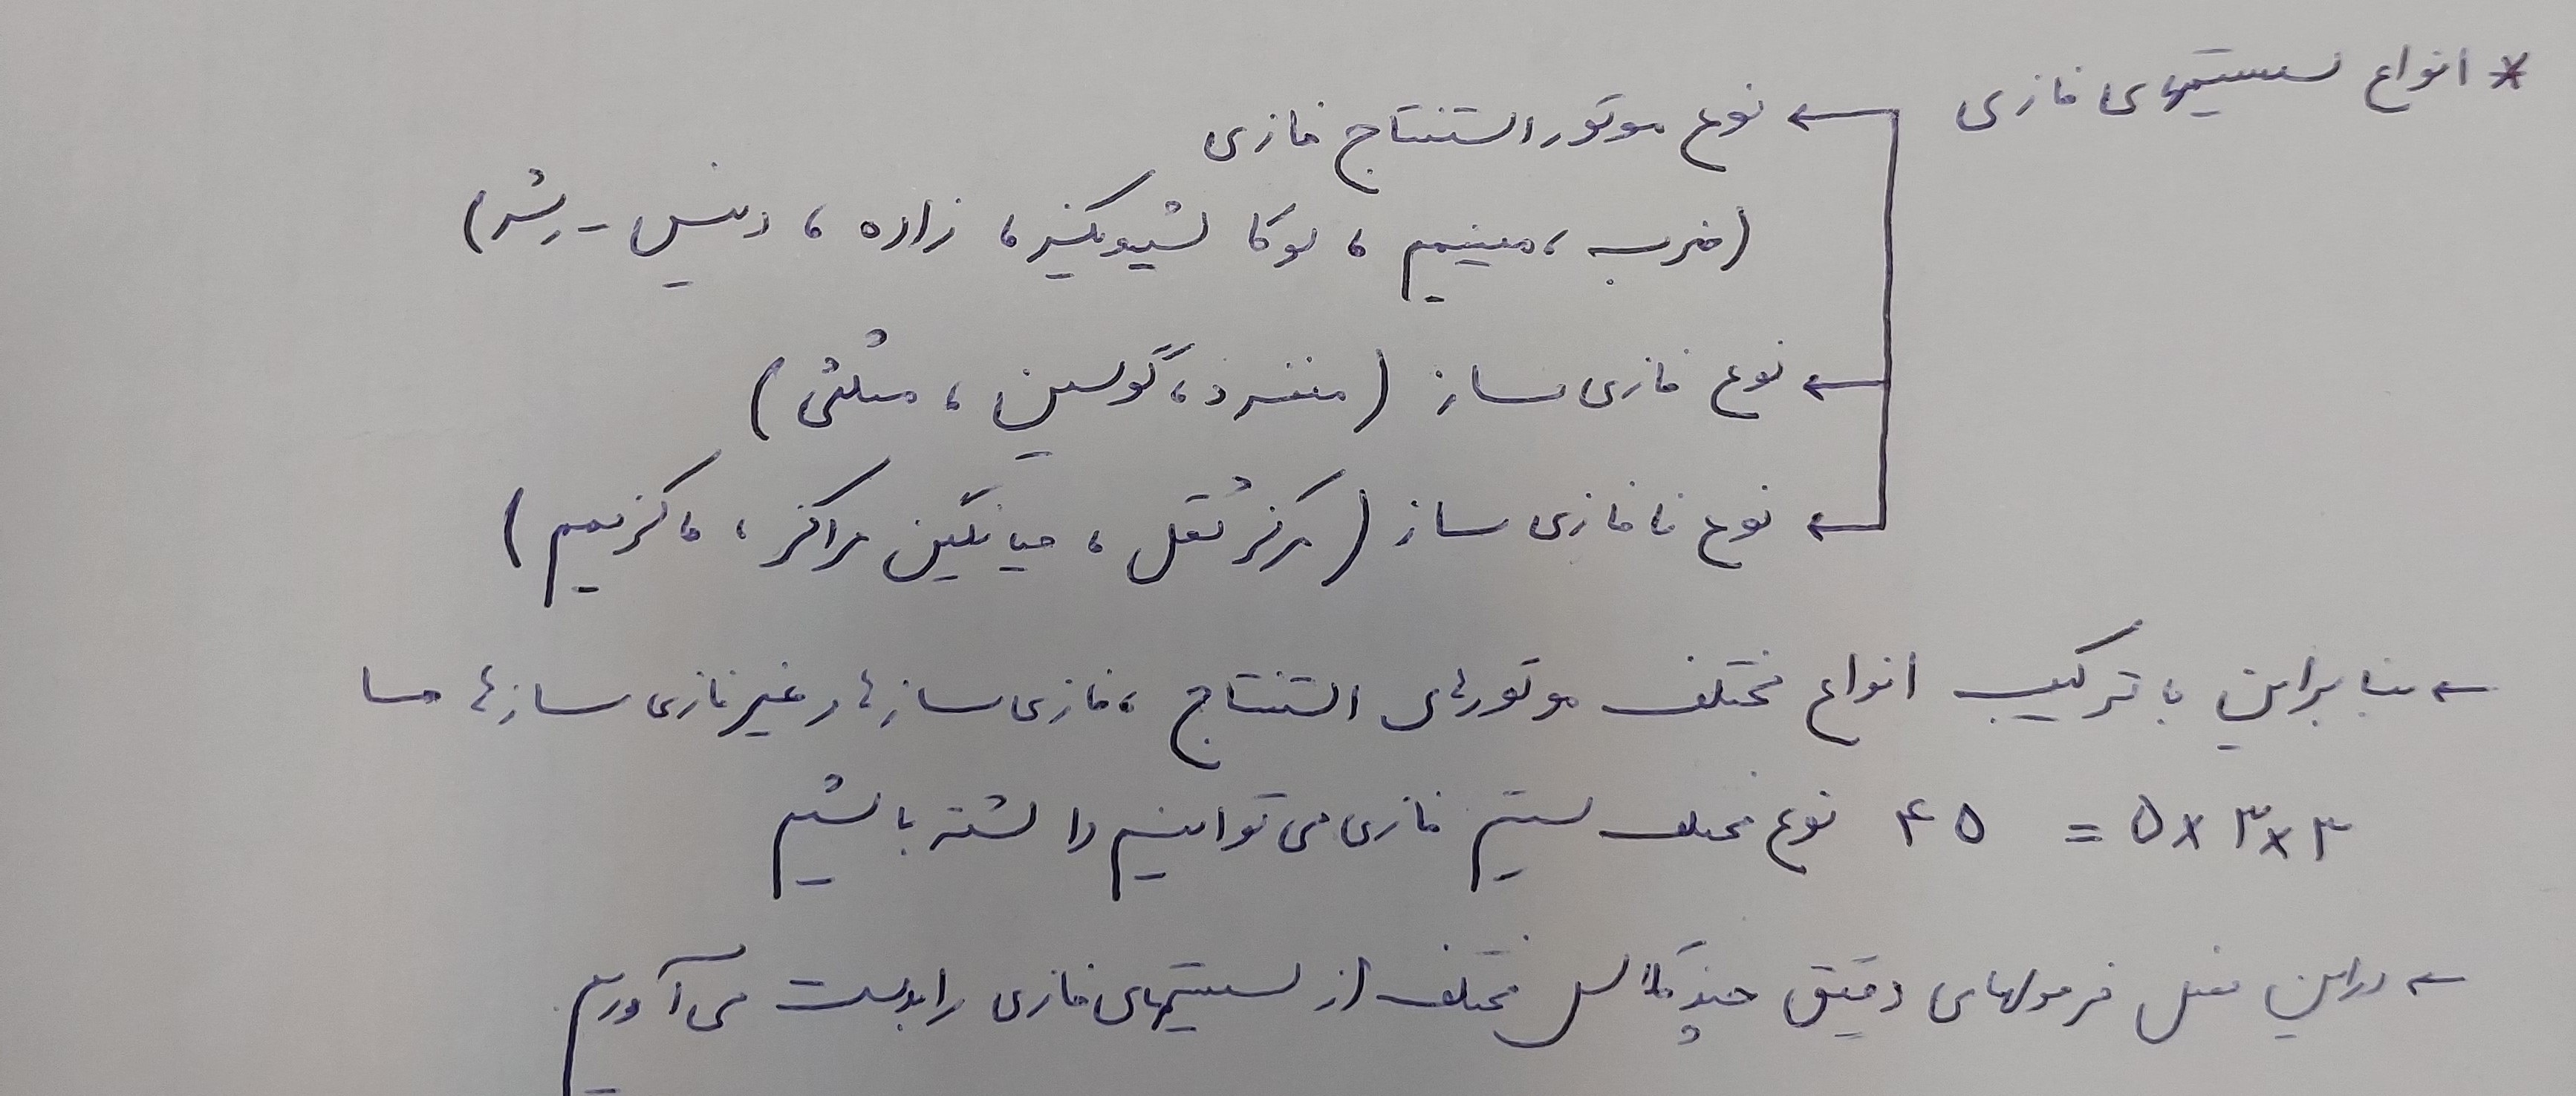 * انواع سیستمهای فازی
← نوع موتور استنتاج فازی
(ضرب، مینیمم، لوکا شیویکنیر، زاده، دنیس-رشر)
← نوع فازی ساز (منفرد، گوسین، مثلثی)
← نوع نافازی ساز (مرکز ثقل، میانگین مراکز، ماکزیمم)
← بنابراین با ترکیب انواع مختلف موتورهای استنتاج، فازی سازها و غیرفازی سازها ما
۵×۳×۳ = ۴۵ نوع مختلف سیستم فازی می توانیم داشته باشیم
← دراین فصل فرمولهای دقیق چند کلاس مختلف از سیستمهای فازی را بدست می آوریم